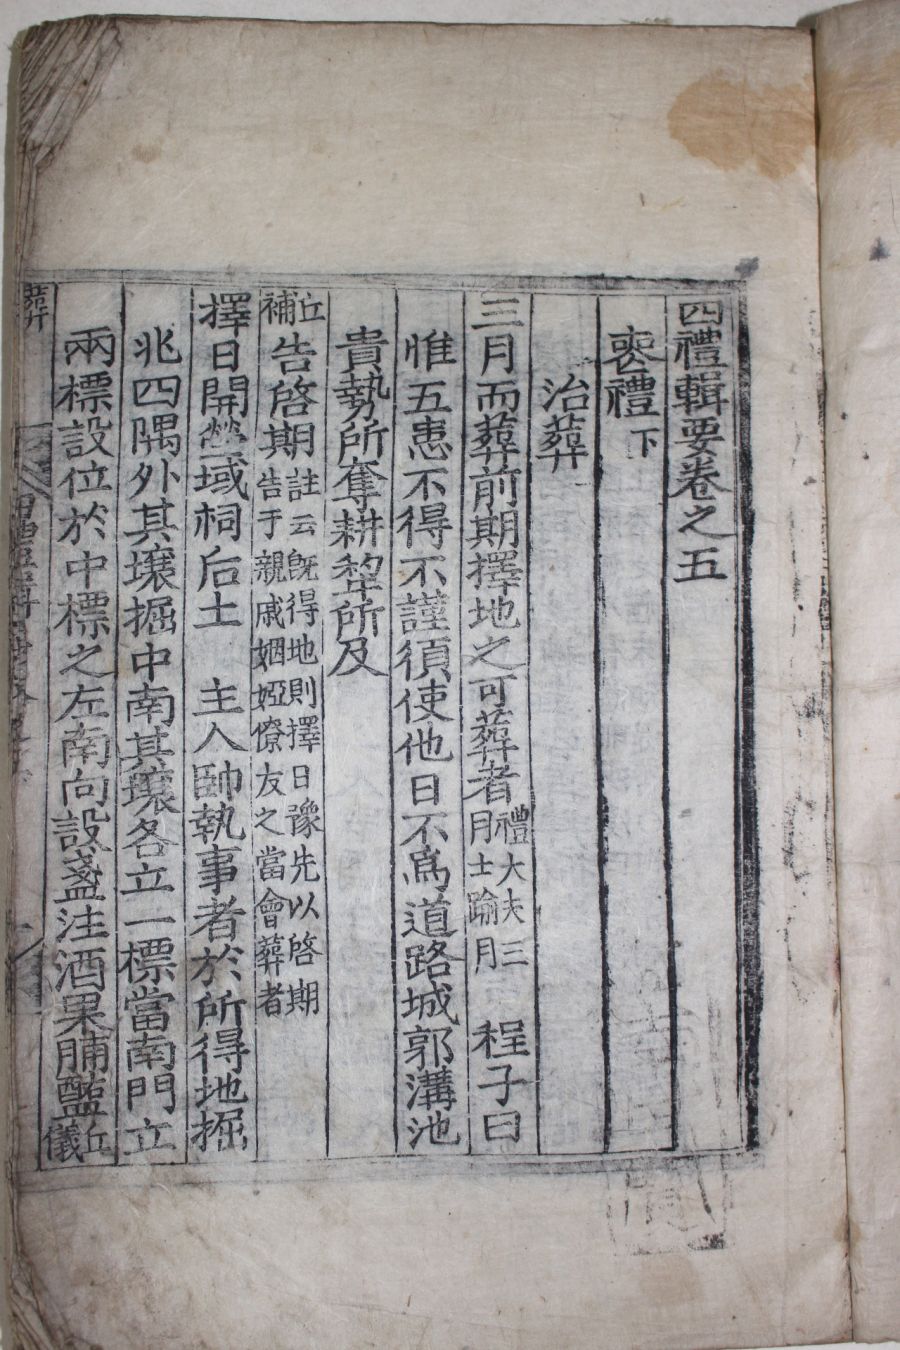 四禮輯要卷之五
喪禮 下
治葬
三月而葬前期擇地之可葬者 禮大夫三月士踰月 程子曰
惟五患不得不謹須使他日不爲道路城郭溝池
貴勢所奪耕犂所及
丘補 告啓期 註云旣得地則擇日豫先以啓期告于親戚姻婭僚友之當會葬者
擇日開塋域祠后土 主人帥執事者於所得地掘
兆四隅外其壤掘中南其壤各立一標當南門立
兩標設位於中標之左南向設盞注酒果脯醢 丘儀
葬